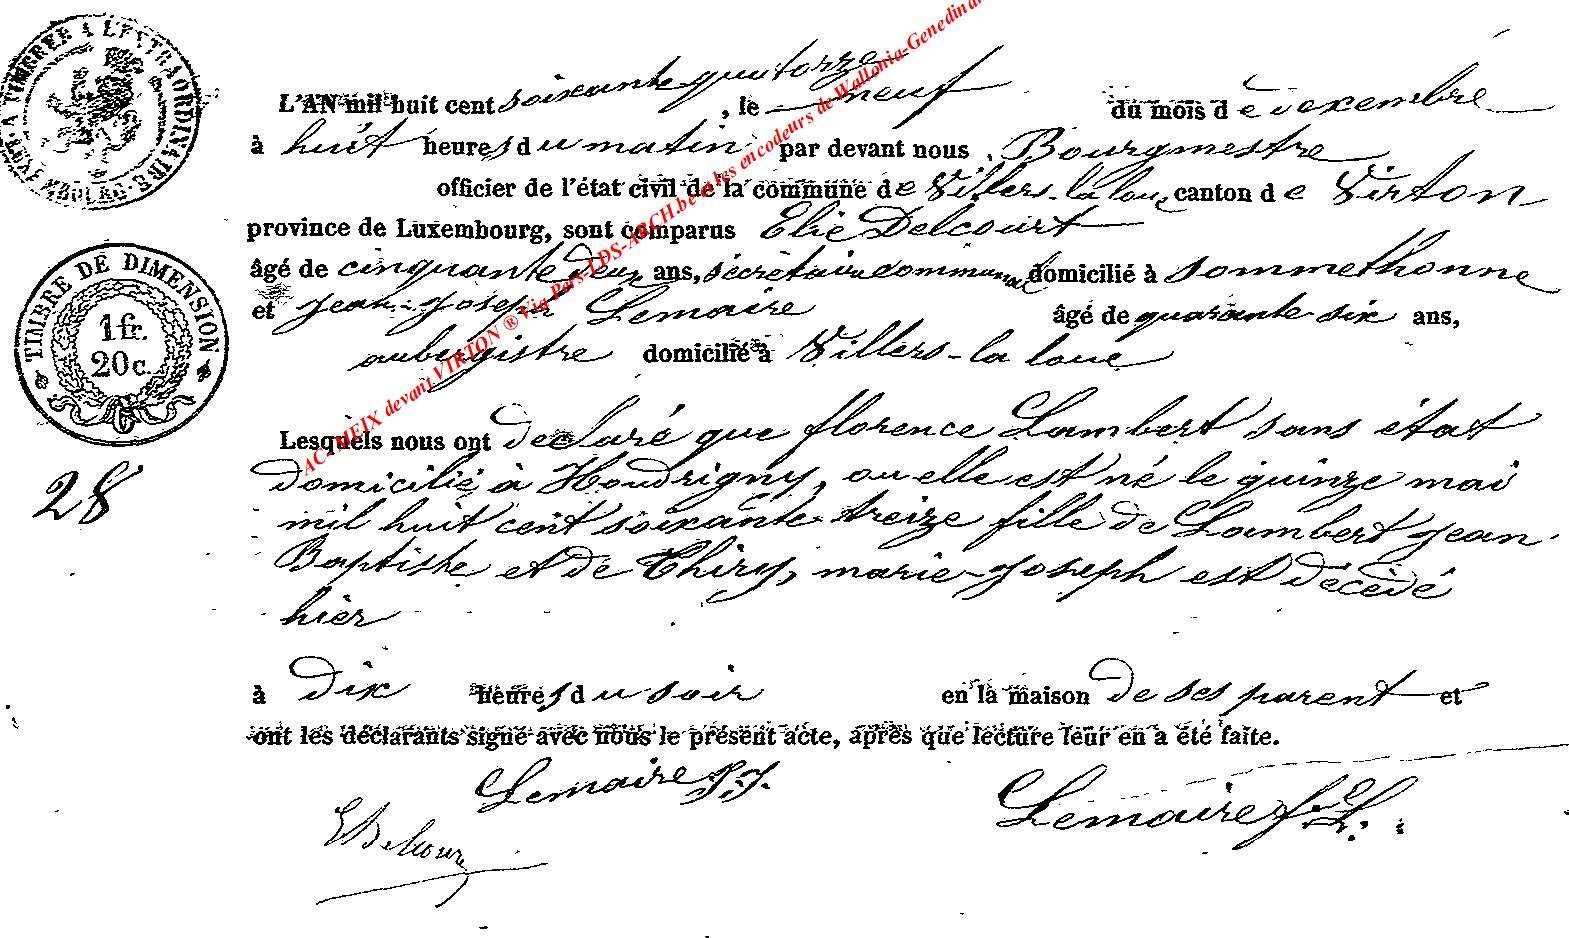 TIMBRES A L'EXTRAORDINAIRE
LUXEMBOURG
L'AN mil huit cent soixante quatorze, le neuf du mois de décembre
à huit heures du matin par devant nous, Bourgmestre
officier de l'état civil de la commune de Villers-la loue canton de Virton
province de Luxembourg, sont comparus Elie Delcourt
âgé de cinquante deux ans, secrétaire communal domicilié à Sommethonne
et Jean-Joseph Lemaire âgé de quarante six ans,
aubergistre domicilié à Villers-la loue
TIMBRE DE DIMENSION
1 fr.
20 c.
Lesquels nous ont declaré que florence Lambert sans état
domicilié à Houdrigny, ou elle est né le quinze mai
mil huit cent soixante treize fille de Lambert Jean
Baptiste et de Thiry, marie-Joseph est décédé
hier
28
à dix heures du soir en la maison de ses parent et
ont les déclarants signé avec nous le présent acte, après que lecture leur en a été faite.
Lemaire J.J.
Lemaire f. L.
E Delcourt
ACT MEIX devant VIRTON ® Via Pars-LDS-ARCH.be et les encodeurs de Wallonia-Genedinar